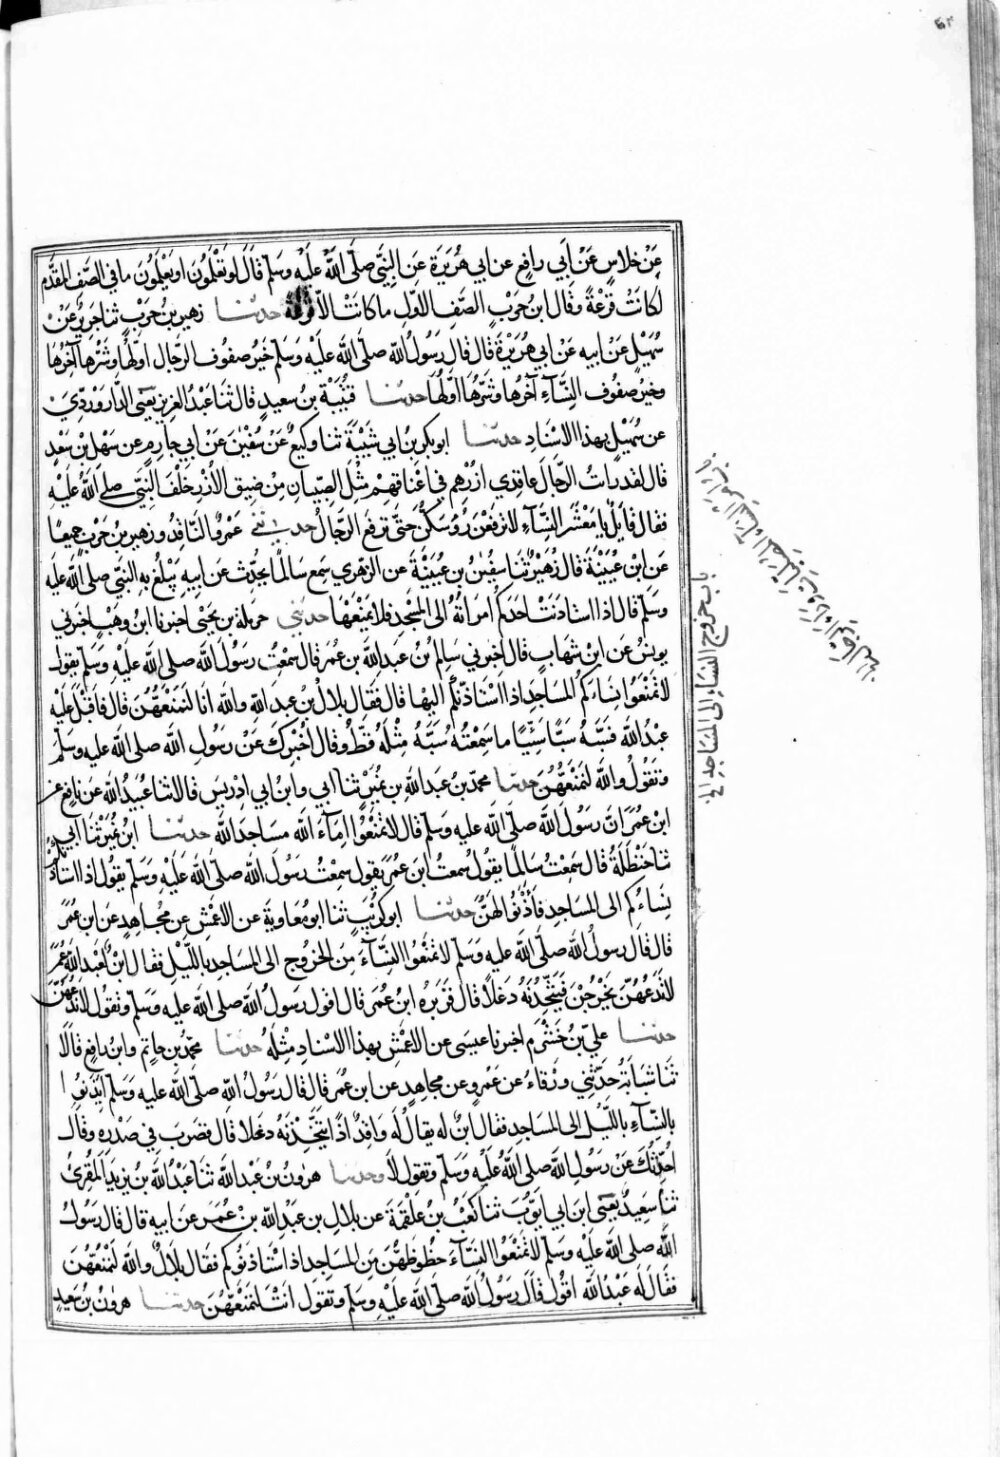 عَنْ خلاسٍ عَنْ أَبي رافِع عن ابي هُرَيرَة عَنِ النَّبِيّ صَلّى اللهُ عَلَيْهِ وسَلّم قالَ لو تَعْلَمُونَ او يَعْلَمُونَ ما في الصَّفِ المقدَّم
لكانَتْ قُرْعَةً وقال ابنُ حَرْبٍ الصَّفِ الاوّلِ ما كانَتْ الاّ قرعَة حدثنا زهير بن حَرْبٍ ثنا جَريرٌ عَنْ
سُهَيْلٍ عَنْ ابيه عَنْ ابي هُرَيْرَةَ قال قال رَسُولُ الله صلّى الله عَلَيْهِ وَسَلّم خَيْرُ صفوف الرّجال اوّلُها وشَرُّها آخِرُها
وخيرُ صفُوف النِّسَآءِ آخرُها وشَرُّهَا اوّلُها حدثنا قُتَيْبَةُ بن سَعيدٍ قال ثَنَا عَبْدُ العَزيز يَعْنى الدَّارَوَرْدِيَّ
عن سُهَيْلٍ بهذا الاسْنَادِ حدثنا ابو بكر بن ابي شَيْبَةَ ثنا وكيعٌ عَنْ سُفْيٰنَ عَنْ ابي حازِمٍ عن سَهْلِ بْنِ سَعْدٍ
قال لقد رَاَيتُ الرِّجَالَ عاقِدي اُزُرِهِم في اَعْنَاقِهِمْ مِثْلَ الصِّبيانِ مِنْ ضِيقِ الاُزُرِ خَلْفَ النَّبِيّ صلى اللهُ عَلَيْهِ
فقال قايلٌ يا مَعْشَرَ النِّسَآءِ لا ترفَعْنَ رُؤُسَكُنَّ حَتّى يَرفعَ الرّجالُ حدثني عَمْرٌو النَّاقِدُ وزهير بن حَرْبٍ جميعًا
عَن ابْن عُيَيْنَةَ قال زُهَيْرٌ ثنا سفيٰنُ بن عُيَيْنَةَ عن الزهري سمعَ سالماً يحدِّث عن ابيهِ يَبْلغُ بِهِ النَّبِيّ صلى اللهُ عليه
وسَلّم قال اذا استاذنَتْ احَدَكُمْ امرَاتُهُ الى المَسْجدِ فلا يَمْنَعْهَا حدثني حرملة بن يحيى اخبرنا ابنُ وهبٍ اخبَرني
يونسُ عن ابن شهابٍ قال اخبرني سالِمُ بْن عَبدِ اللهِ بن عُمَرَ قال سَمِعْتُ رَسُولَ اللهِ صلى الله عليهِ وسَلّم يقول
لا تَمْنَعُوا نِسَاءَكُمُ المسَاجِدَ اذا اسْتَاذنَّكُمْ اليها قال فقال بلالُ بن عبد اللهِ والله انا لَنَمْنَعُهُنَّ قال فاَقبَلَ عَلَيْهِ
عبْدُ الله فَسَبَّهُ سَبًّا سَيِّئًا ما سَمِعْتُهُ سَبَّهُ مِثْلَهُ قَطُّ وقال اُخْبِرُكَ عَنْ رَسُولِ اللهِ صلى الله عليه وسَلّم
وتَقولُ واللهِ لَنَمْنَعُهُنَّ حدثنا محمد بن عَبدِ اللهِ بن نُمَيْرٍ ثنا ابي وابنُ ابي ادريسَ قالا ثنا عُبَيْدُ اللهِ عَن نافِعٍ عن
ابن عُمَرَ انَّ رَسُولَ الله صَلّى اللهُ عليه وسَلّم قال لا تَمْنَعُوا اِمَآءَ اللهِ مسَاجدَ الله حدثنا ابنُ نُمَيْرٍ ثنا ابي
ثنا حَنْظَلَةُ قال سَمِعْتُ سَالِمًا يقولُ سمعتُ ابن عُمَرَ يقول سمعْتُ رَسُولَ الله صلى اللهُ عَلَيْهِ وسَلّم يقول اذا استاذنكم
نِساؤُكُم الى المسَاجِدِ فَأْذَنُوا لهُنَّ حدثنا ابو كُرَيْبٍ ثنا ابو مُعَاويةَ عن الاعْمَشِ عن مجُاهِدٍ عن ابن عُمَرَ
قال قال رسولُ اللهِ صلَّى اللهُ عليه وسَلّم لا تَمْنَعُوا النِّسَآءَ مِنَ الخُرُوجِ الى المسَاجِدِ باللّيْلِ فقال ابنٌ لعَبْدِ الله بن عُمَرَ
لا نَدَعُهُنَّ يَخْرُجْنَ فَيَتَّخِذْنَهُ دَغَلاً قال فَزَبَرَهُ ابن عُمَرَ قال اقول رَسولُ الله صلى الله عليه وسَلّم وتقول لا نَدَعُهُنَّ
حدثنا عليّ بن خَشْرَمٍ اخبرنا عيسَى عن الاعْمَشِ بهذا الاسْنادِ مِثْلَهُ حدثنا محمّد بن حاتِمٍ وابن رافِعٍ قالا
ثنا شَبَابَةُ حدّثني ورْقاءُ عن عَمْرٍو عن مجاهدٍ عن ابن عُمَرَ قال قال رَسُولُ اللهِ صلى الله عليه وسَلّم ايذَنوُا
بالنّسَآءِ باللّيْلِ الى المساجِدِ فقال ابنٌ له يقالُ لَه واقِدٌ اذًا يَتَّخِذْنَهُ دغلا قال فضَربَ في صَدْرِهِ وقال
اُحَدِّثُكَ عَنْ رَسُولِ اللهِ صلى اللهُ عَلَيْهِ وَسَلّم وتقول لا وحدثنا هرون بْنُ عَبْدِ الله ثنا عَبْدُ الله بن يزيدَ المُقرِئُ
ثنا سعِيدٌ يَعنى ابن ابي ايّوُبَ ثنا كَعْبُ بن عَلْقَمَةَ عن بلالِ بن عبْدِ الله بن عُمَرَ عن ابيه قال قال رَسُولُ
اللهِ صلى اللهُ عَلَيْهِ وسَلّم لا تَمْنَعُوا النِّسَآءَ حظُوظَهُنَّ مِنَ المسَاجِدِ اذا اسْتَاذنُوكم فقال بلالٌ واللهِ لَنَمْنَعُهُنَّ
فقالَ لَه عَبْدُ الله اقولُ قَالَ رَسُولُ اللهِ صلى اللهُ عَلَيْهِ وسَلّم وتقولُ انْتَ لَنمْنَعُهُنَّ حدثنا هرون بن سَعيدٍ
باب خروج النسَاء الى المسَاجد الخ